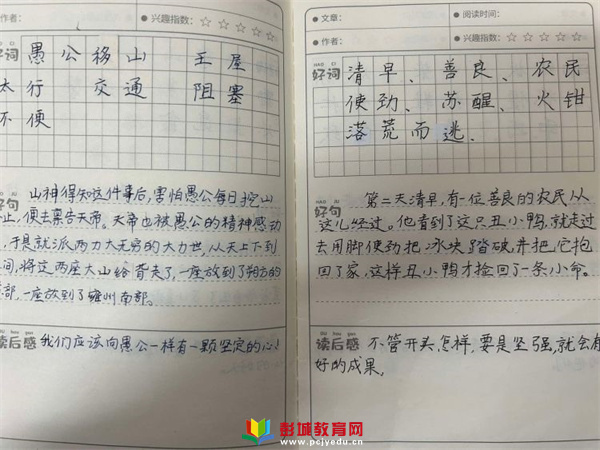 作者:
兴趣指数:
好词
愚公移山 王屋
太行 交通 阻塞
不便
好句
山神得知这件事后,害怕愚公每日挖山
止,便去禀告天帝。天帝也被愚公的精神感动
,于是就派两力大无穷的大力世,从天上下到
间,将这两座大山给背走了,一座放到了朔方的
部,一座放到了雍州南部。
读后感
我们应该向愚公一样有一颗坚定的心!
文章:
阅读时间:
作者:
兴趣指数:
HAO CI
好词
清早、善良、农民
使劲、苏醒、火钳
落荒而逃、
HAO JU
好句
第二天清早,有一位善良的农民从
这儿经过。他看到了这只丑小鸭,就走过
去用脚使劲把冰块踏破,并把它抱
回了家,这样丑小鸭才捡回了一条小命。
读后感
不管开头怎样,要是坚强,就会有
好的成果。
彭城教育网
www.pcjyedu.cn